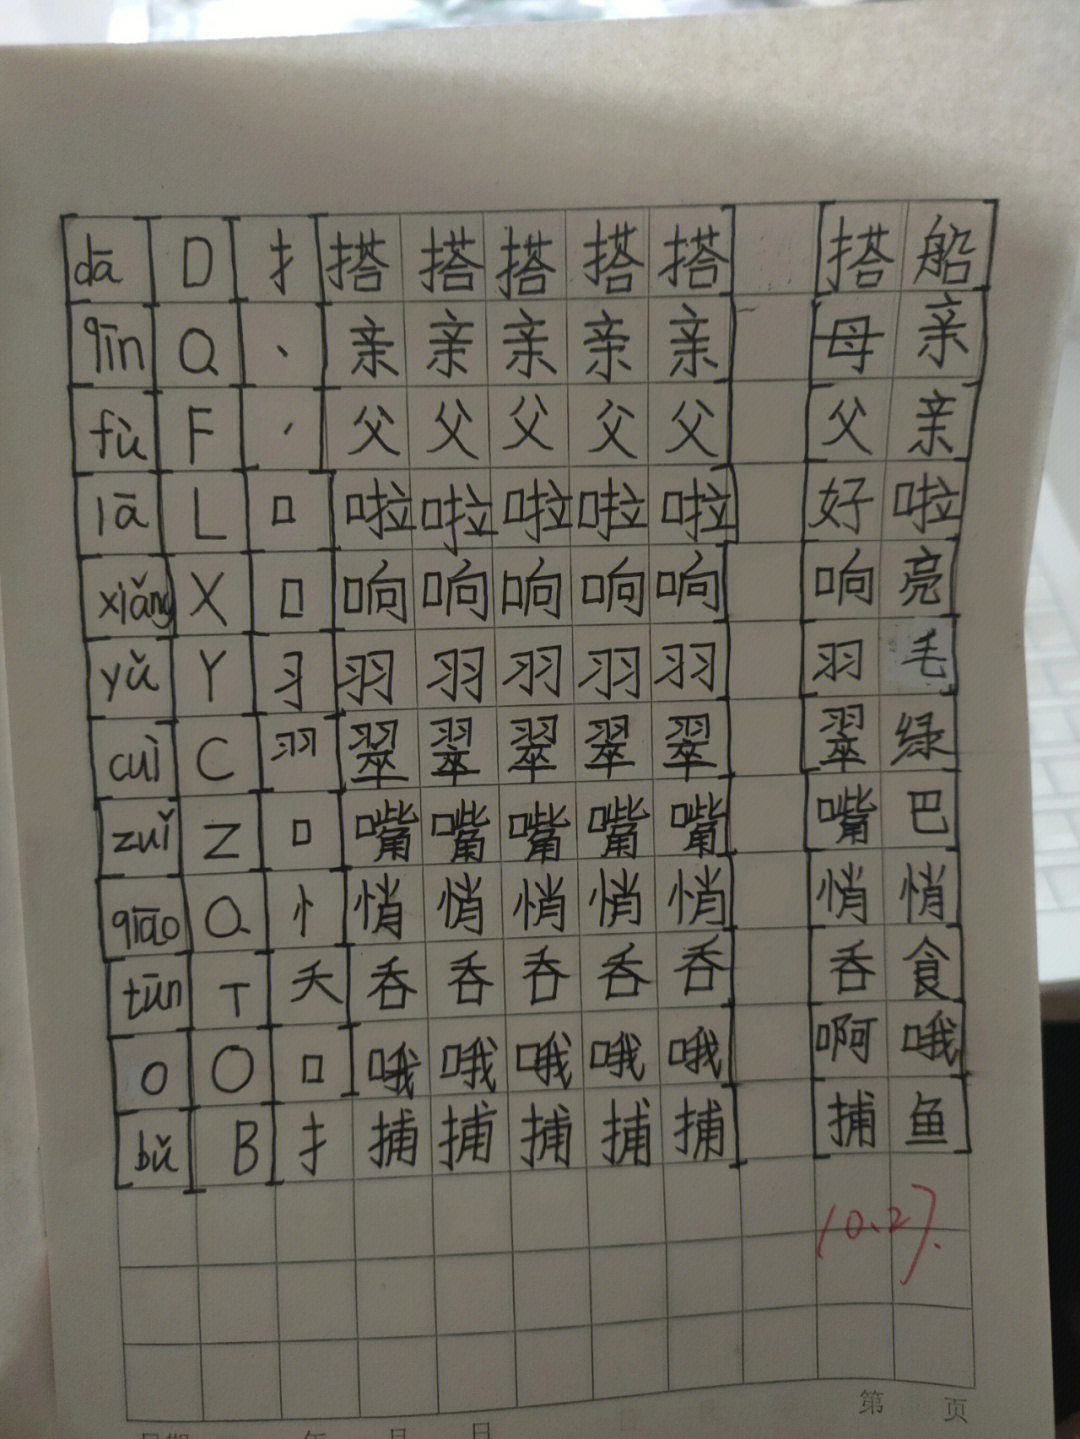 dā D 扌 搭 搭 搭 搭 搭 搭 船
qīn Q 丶 亲 亲 亲 亲 亲 母 亲
fù F ㇒ 父 父 父 父 父 父 亲
lā L 口 啦 啦 啦 啦 啦 好 啦
xiǎng X 口 响 响 响 响 响 响 亮
yǔ Y 习 羽 羽 羽 羽 羽 羽 毛
cuì C 羽 翠 翠 翠 翠 翠 翠 绿
zuǐ Z 口 嘴 嘴 嘴 嘴 嘴 嘴 巴
qiāo Q 忄 悄 悄 悄 悄 悄 悄 悄
tūn T 夭 吞 吞 吞 吞 吞 吞 食
o O 口 哦 哦 哦 哦 哦 啊 哦
bǔ B 扌 捕 捕 捕 捕 捕 捕 鱼
10.27.
第 页
年 月 日